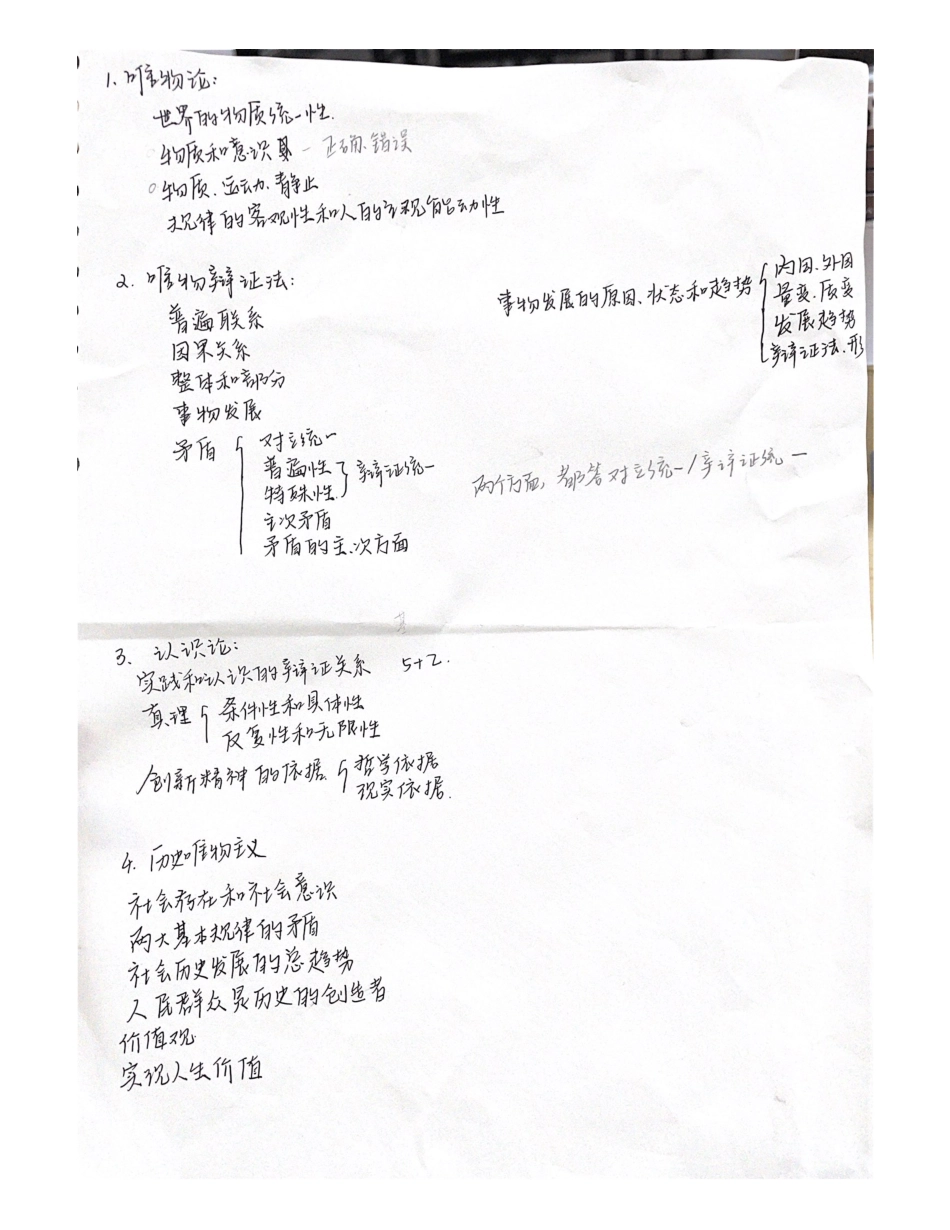 1. 唯物论:
世界的物质统一性.
物质和意识 - 正确、错误
物质、运动、静止
规律的客观性和人的主观能动性
2. 唯物辩证法:
普遍联系
因果关系
整体和部分
事物发展
矛盾
对立统一
普遍性
特殊性
辩证统一
主次矛盾
矛盾的主、次方面
事物发展的原因、状态和趋势
内因、外因
量变、质变
发展趋势
辩证法、形
两个方面, 都答对立统一/辩证统一
3. 认识论:
实践和认识的辩证关系 5+2.
真理
条件性和具体性
反复性和无限性
创新精神的依据
哲学依据
现实依据.
4. 历史唯物主义
社会存在和社会意识
两大基本规律的矛盾
社会历史发展的总趋势
人民群众是历史的创造者
价值观
实现人生价值